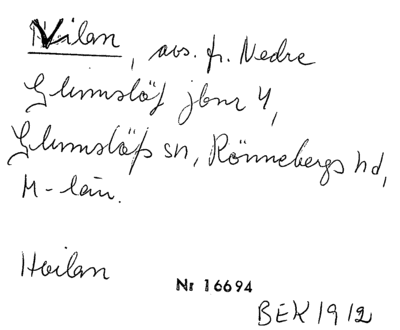 Vilan, avs. fr. Nedre
Glumslöf jbnr 4,
Glumslöfs sn, Rönnebergs hd,
M-län.
Hvilan
Nr 16694
BEK 1912